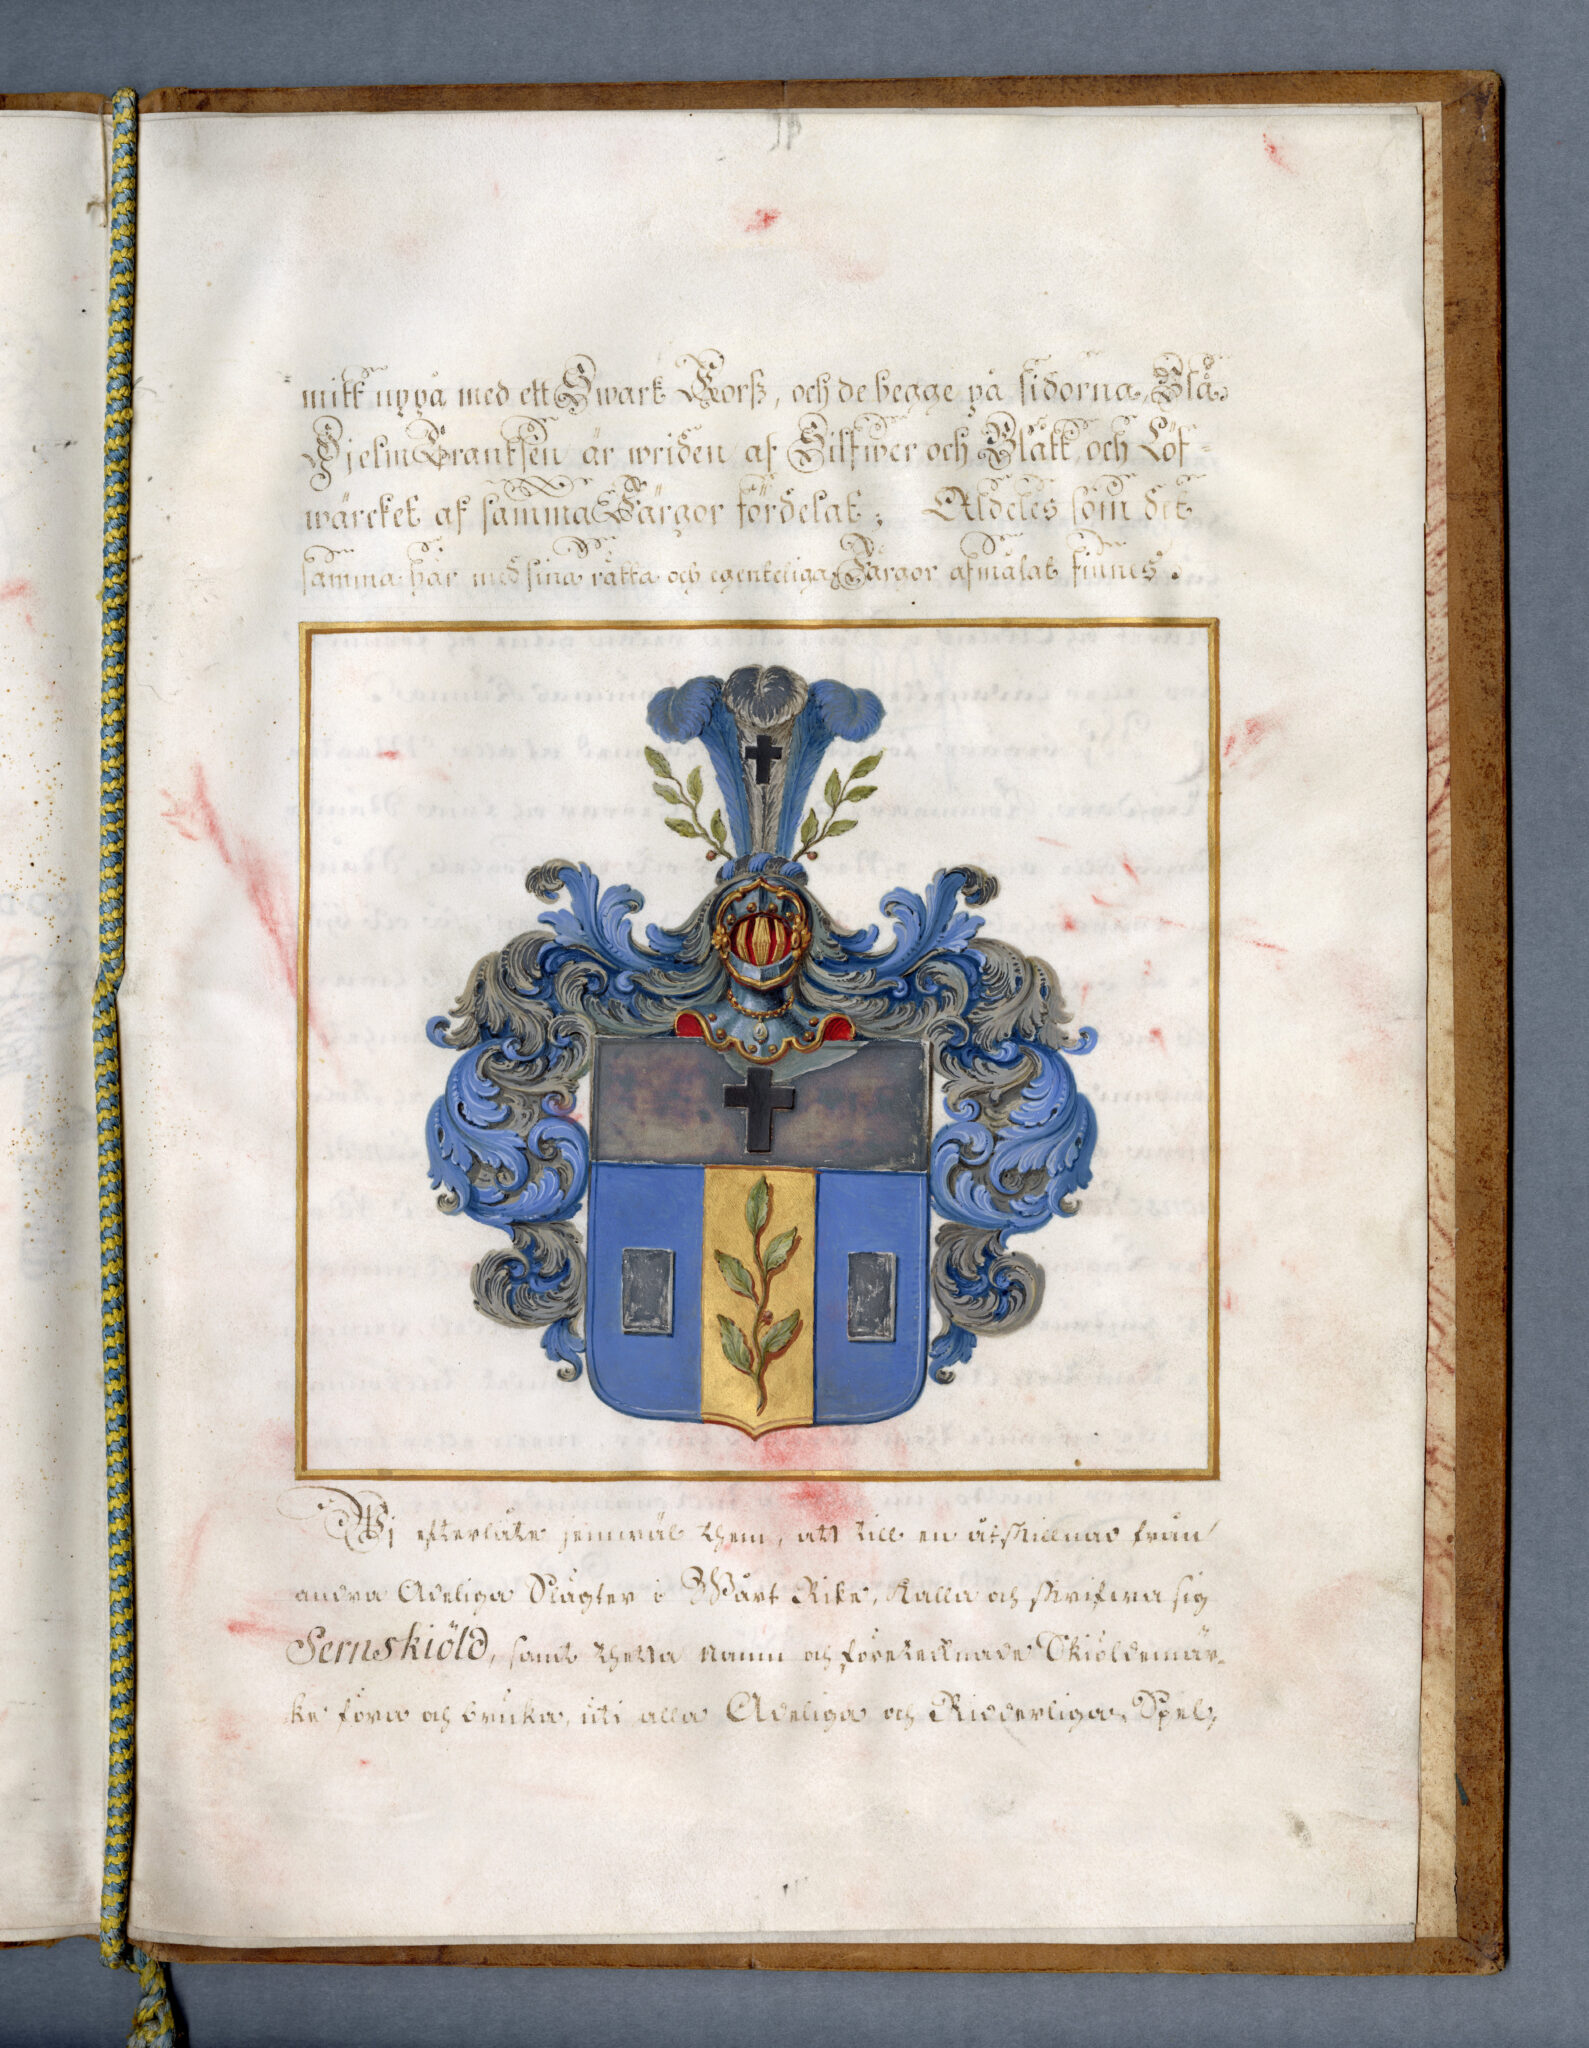 mitt uppå med ett Swart Korß, och de begge på sidorna, Blå.
Hjelm Crantsen är wriden af Silfwer och Blått, och Löf-
wärcket af samma Färgor fördelat; Aldeles som det
samma här med sina rätta och egenteliga Färgor afmålat finnes.
Wj efterlåte jemwäl them, att till en åtskillnad från
andra Adeliga Slägter i Wårt Rike, kalla och skrifwa sig
Sernskiöld, samt thetta namn och företecknade Skiöldemär-
ke föra och bruka, uti alla Adeliga och Ridderliga Spel,